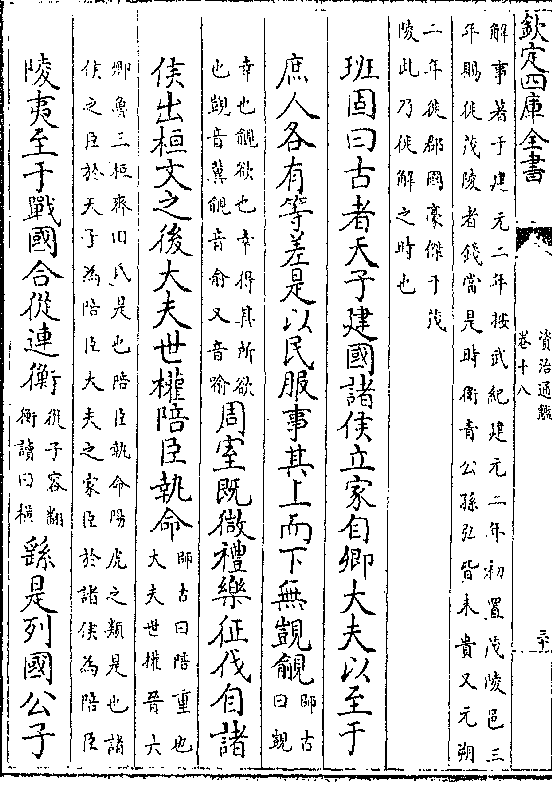 欽定四庫全書
資治通鑑
卷十八
三十
解事著于建元二年按武紀建元二年初置茂陵邑三
年賜徙茂陵者錢當是時衛青公孫弘皆未貴又元朔
二年徙郡國豪傑于茂
陵此乃徙解之時也
班固曰古者天子建國諸侯立家自卿大夫以至于
庶人各有等差是以民服事其上而下無覬覦
師古
曰覬
幸也覦欲也幸得其所欲
也覬音冀覦音俞又音喻
周室既微禮樂征伐自諸
侯出桓文之後大夫世權陪臣執命
師古曰陪重也
大夫世權晉六
卿魯三桓齊田氏是也陪臣執命陽虎之類是也諸
侯之臣於天子為陪臣大夫之家臣於諸侯為陪臣
陵夷至于戰國合從連衡
從子容翻
衡讀曰橫
繇是列國公子